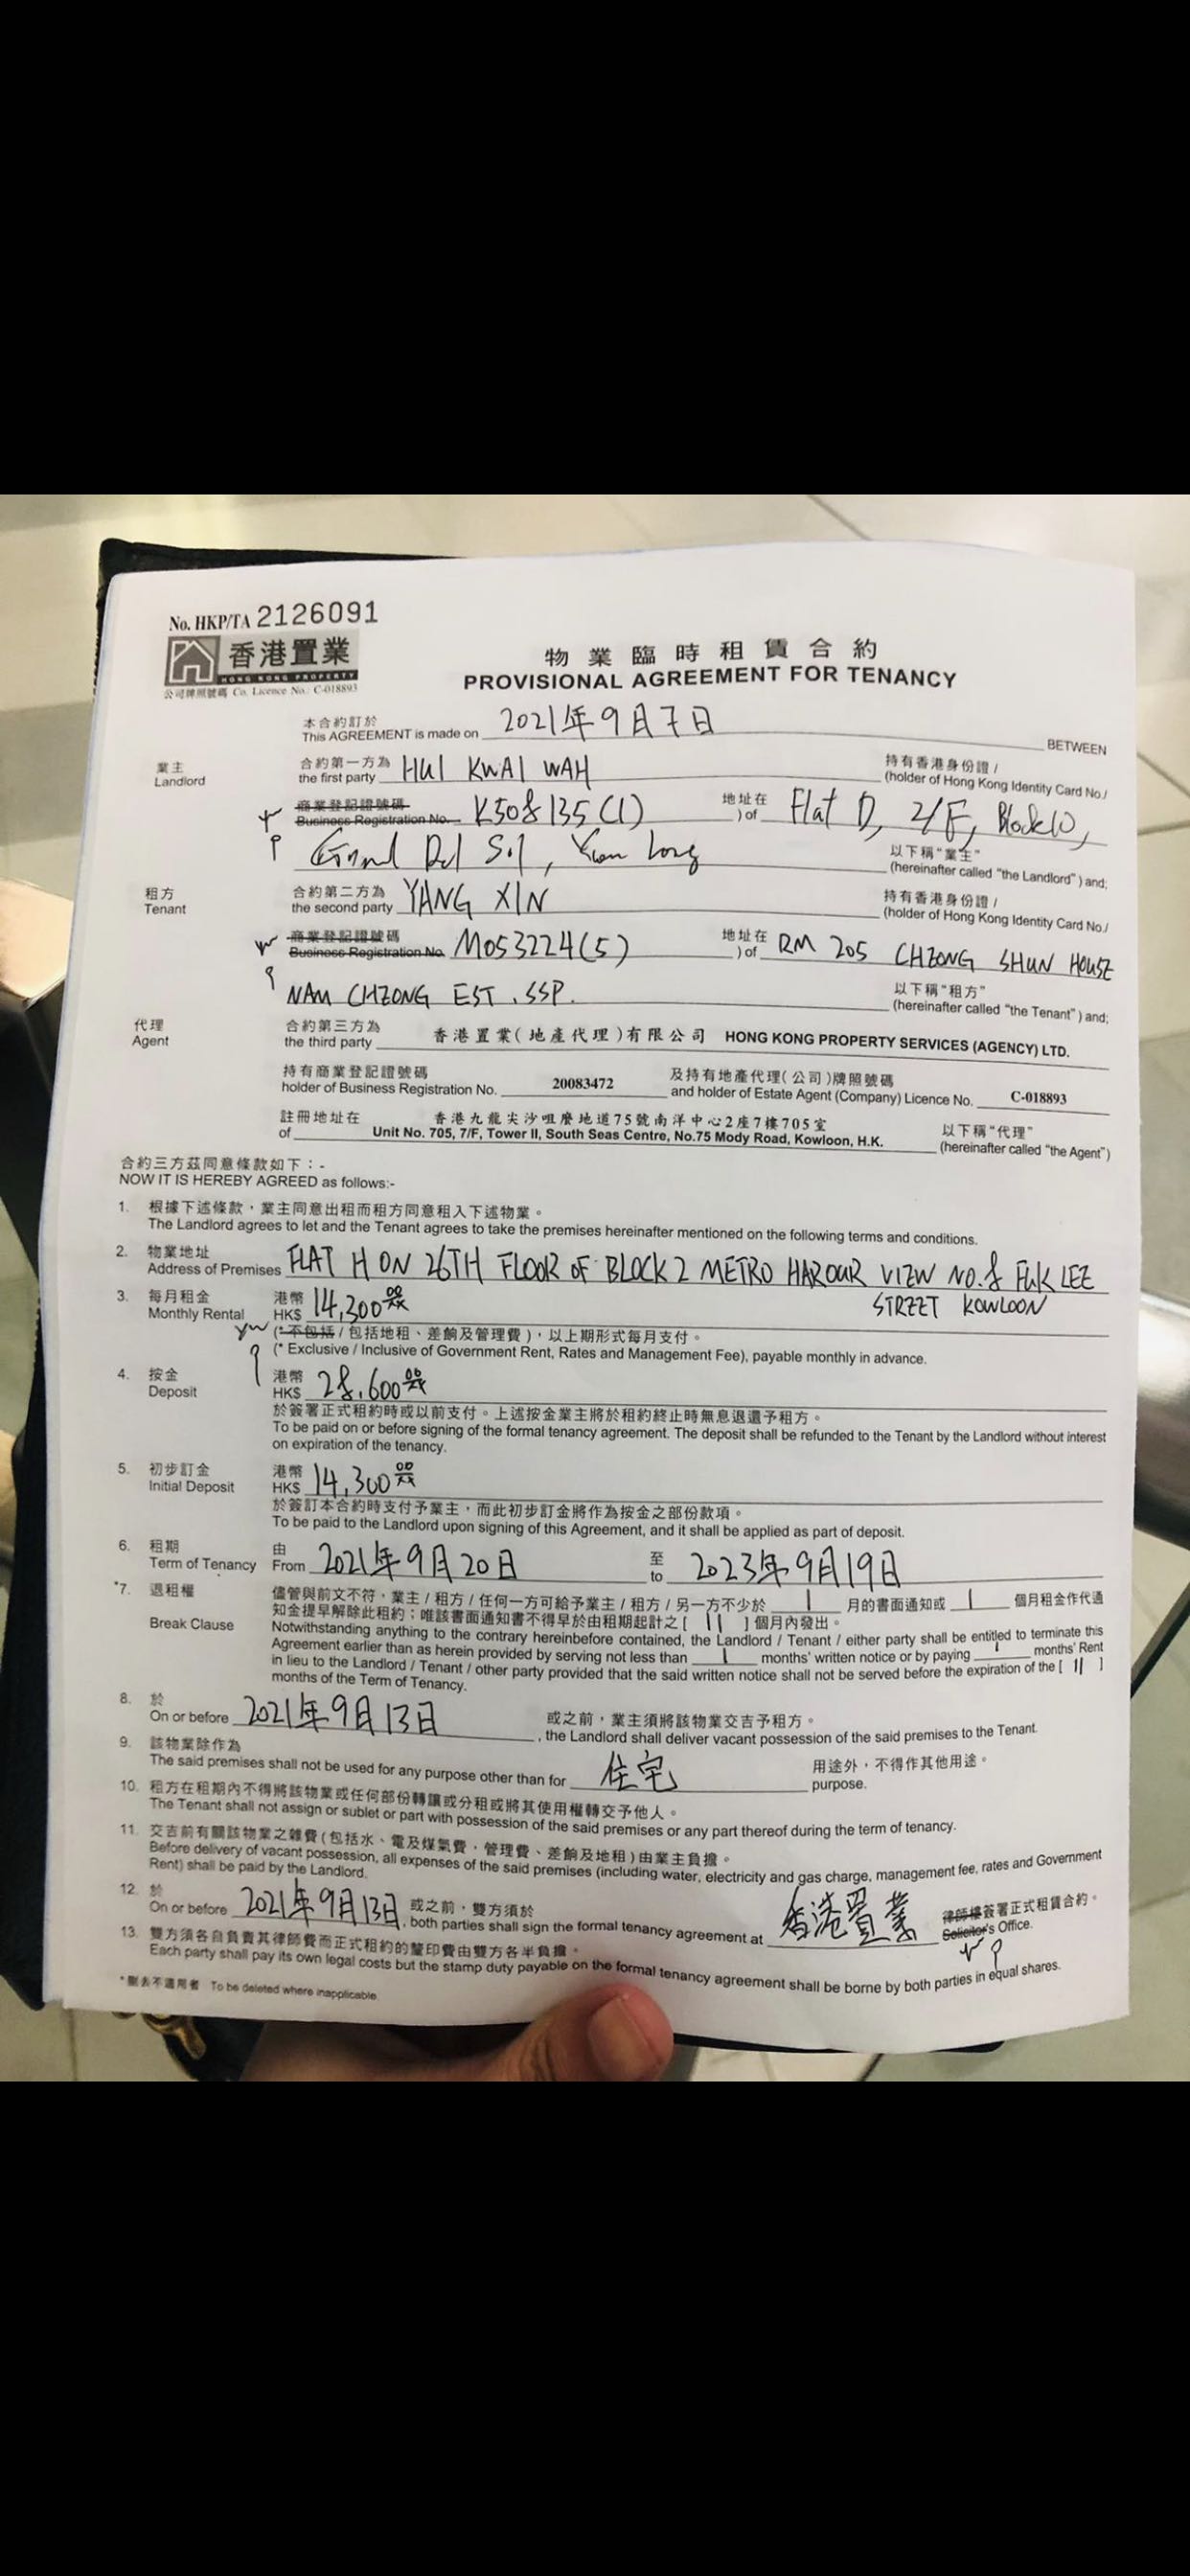 No. HKP/TA 2126091
香港置業
HONG KONG PROPERTY
公司牌照號碼 Co. Licence No.: C-018893
物業臨時租賃合約
PROVISIONAL AGREEMENT FOR TENANCY
本合約訂於
This AGREEMENT is made on 2021年9月7日 BETWEEN
業主 合約第一方為 持有香港身份證 /
Landlord the first party HUI KWAI WAH (holder of Hong Kong Identity Card No./
商業登記證號碼 地址在
Business Registration No. K508135(1) ) of Flat D, 2/F, Block10,
Grand Del Sol, Yuen Long 以下稱“業主”
(hereinafter called "the Landlord") and;
租方 合約第二方為 持有香港身份證 /
Tenant the second party YANG XIN (holder of Hong Kong Identity Card No./
商業登記證號碼 地址在
Business Registration No. M053224(5) ) of RM 205 CHEONG SHUN HOUSE
NAM CHEONG EST. SSP. 以下稱“租方”
(hereinafter called "the Tenant") and;
代理 合約第三方為
Agent the third party 香港置業(地產代理)有限公司 HONG KONG PROPERTY SERVICES (AGENCY) LTD.
持有商業登記證號碼 及持有地產代理(公司)牌照號碼
holder of Business Registration No. 20083472 and holder of Estate Agent (Company) Licence No. C-018893
註冊地址在 香港九龍尖沙咀麼地道75號南洋中心2座7樓705室 以下稱“代理”
of Unit No. 705, 7/F, Tower II, South Seas Centre, No.75 Mody Road, Kowloon, H.K. (hereinafter called "the Agent")
合約三方茲同意條款如下：-
NOW IT IS HEREBY AGREED as follows:-
1. 根據下述條款，業主同意出租而租方同意租入下述物業。
The Landlord agrees to let and the Tenant agrees to take the premises hereinafter mentioned on the following terms and conditions.
2. 物業地址
Address of Premises FLAT H ON 26TH FLOOR OF BLOCK 2 METRO HAROUR VIEW NO.8 FUK LEE
STREET KOWLOON
3. 每月租金 港幣
Monthly Rental HK$ 14,300
(* 不包括 / 包括地租、差餉及管理費)，以上期形式每月支付。
(* Exclusive / Inclusive of Government Rent, Rates and Management Fee), payable monthly in advance.
4. 按金 港幣
Deposit HK$ 28,600
於簽署正式租約時或以前支付。上述按金業主將於租約終止時無息退還予租方。
To be paid on or before signing of the formal tenancy agreement. The deposit shall be refunded to the Tenant by the Landlord without interest
on expiration of the tenancy.
5. 初步訂金 港幣
Initial Deposit HK$ 14,300
於簽訂本合約時支付予業主，而此初步訂金將作為按金之部份款項。
To be paid to the Landlord upon signing of this Agreement, and it shall be applied as part of deposit.
6. 租期 由 至
Term of Tenancy From 2021年9月20日 to 2023年9月19日
*7. 退租權 儘管與前文不符，業主 / 租方 / 任何一方可給予業主 / 租方 / 另一方不少於 1 月的書面通知或 1 個月租金作代通
知金提早解除此租約；唯該書面通知書不得早於由租期起計之 [ 11 ] 個月內發出。
Break Clause Notwithstanding anything to the contrary hereinbefore contained, the Landlord / Tenant / either party shall be entitled to terminate this
Agreement earlier than as herein provided by serving not less than 1 months' written notice or by paying 1 months' Rent
in lieu to the Landlord / Tenant / other party provided that the said written notice shall not be served before the expiration of the [ 11 ]
months of the Term of Tenancy.
8. 於 或之前，業主須將該物業交吉予租方。
On or before 2021年9月13日 , the Landlord shall deliver vacant possession of the said premises to the Tenant.
9. 該物業除作為 用途外，不得作其他用途。
The said premises shall not be used for any purpose other than for 住宅 purpose.
10. 租方在租期內不得將該物業或任何部份轉讓或分租或將其使用權轉交予他人。
The Tenant shall not assign or sublet or part with possession of the said premises or any part thereof during the term of tenancy.
11. 交吉前有關該物業之雜費(包括水、電及煤氣費，管理費、差餉及地租)由業主負擔。
Before delivery of vacant possession, all expenses of the said premises (including water, electricity and gas charge, management fee, rates and Government
Rent) shall be paid by the Landlord.
12. 於 或之前，雙方須於 律師樓簽署正式租賃合約。
On or before 2021年9月13日 , both parties shall sign the formal tenancy agreement at 香港置業 Solicitor's Office.
13. 雙方須各自負責其律師費而正式租約的釐印費由雙方各半負擔。
Each party shall pay its own legal costs but the stamp duty payable on the formal tenancy agreement shall be borne by both parties in equal shares.
* 刪去不適用者 To be deleted where inapplicable